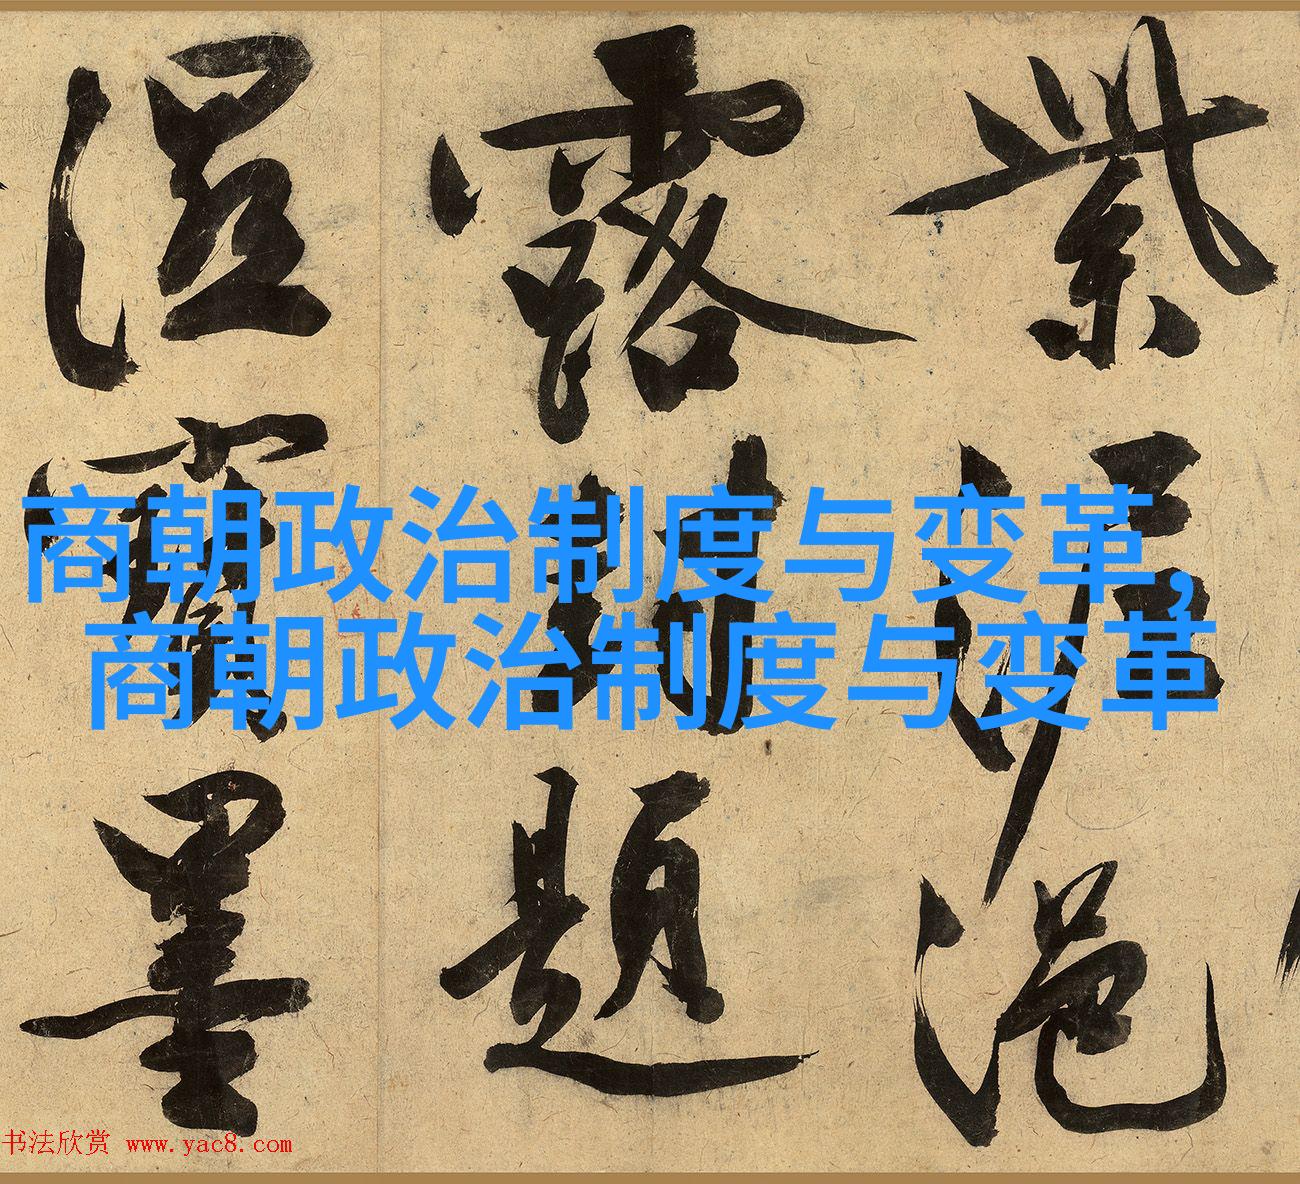 紫泥浥
露封題
濕寶墨
商朝政治制度与变革,
商朝政治制度与变革
书法欣赏 www.yac8.com